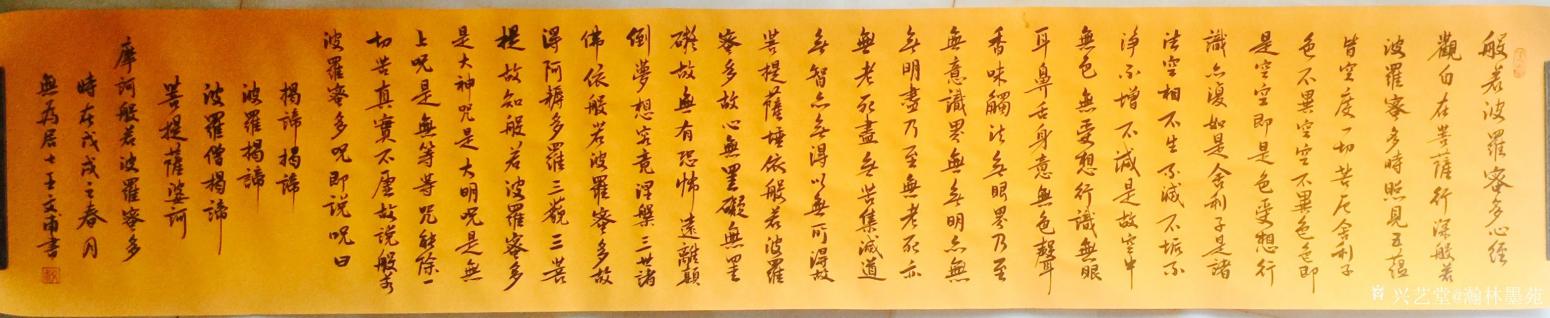 般若波羅蜜多心經
觀自在菩薩行深般若
波羅蜜多時照見五蘊
皆空度一切苦厄舍利子
色不異空空不異色色即
是空空即是色受想行
識亦復如是舍利子是諸
法空相不生不滅不垢不
淨不增不減是故空中
無色無受想行識無眼
耳鼻舌身意無色聲
香味觸法無眼界乃至
無意識界無無明亦無
無明盡乃至無老死亦
無老死盡無苦集滅道
無智亦無得以無所得故
菩提薩埵依般若波羅
蜜多故心無罣礙無罣
礙故無有恐怖遠離顛
倒夢想究竟涅槃三世諸
佛依般若波羅蜜多故
得阿耨多羅三藐三菩
提故知般若波羅蜜多
是大神咒是大明咒是無
上咒是無等等咒能除一
切苦真實不虛故說般若
波羅蜜多咒即說咒曰
揭諦揭諦
波羅揭諦
波羅僧揭諦
菩提薩婆訶
摩訶般若波羅蜜多
時在戊戌之春月
無為居士王文甫書
兴艺堂@瀚林墨苑